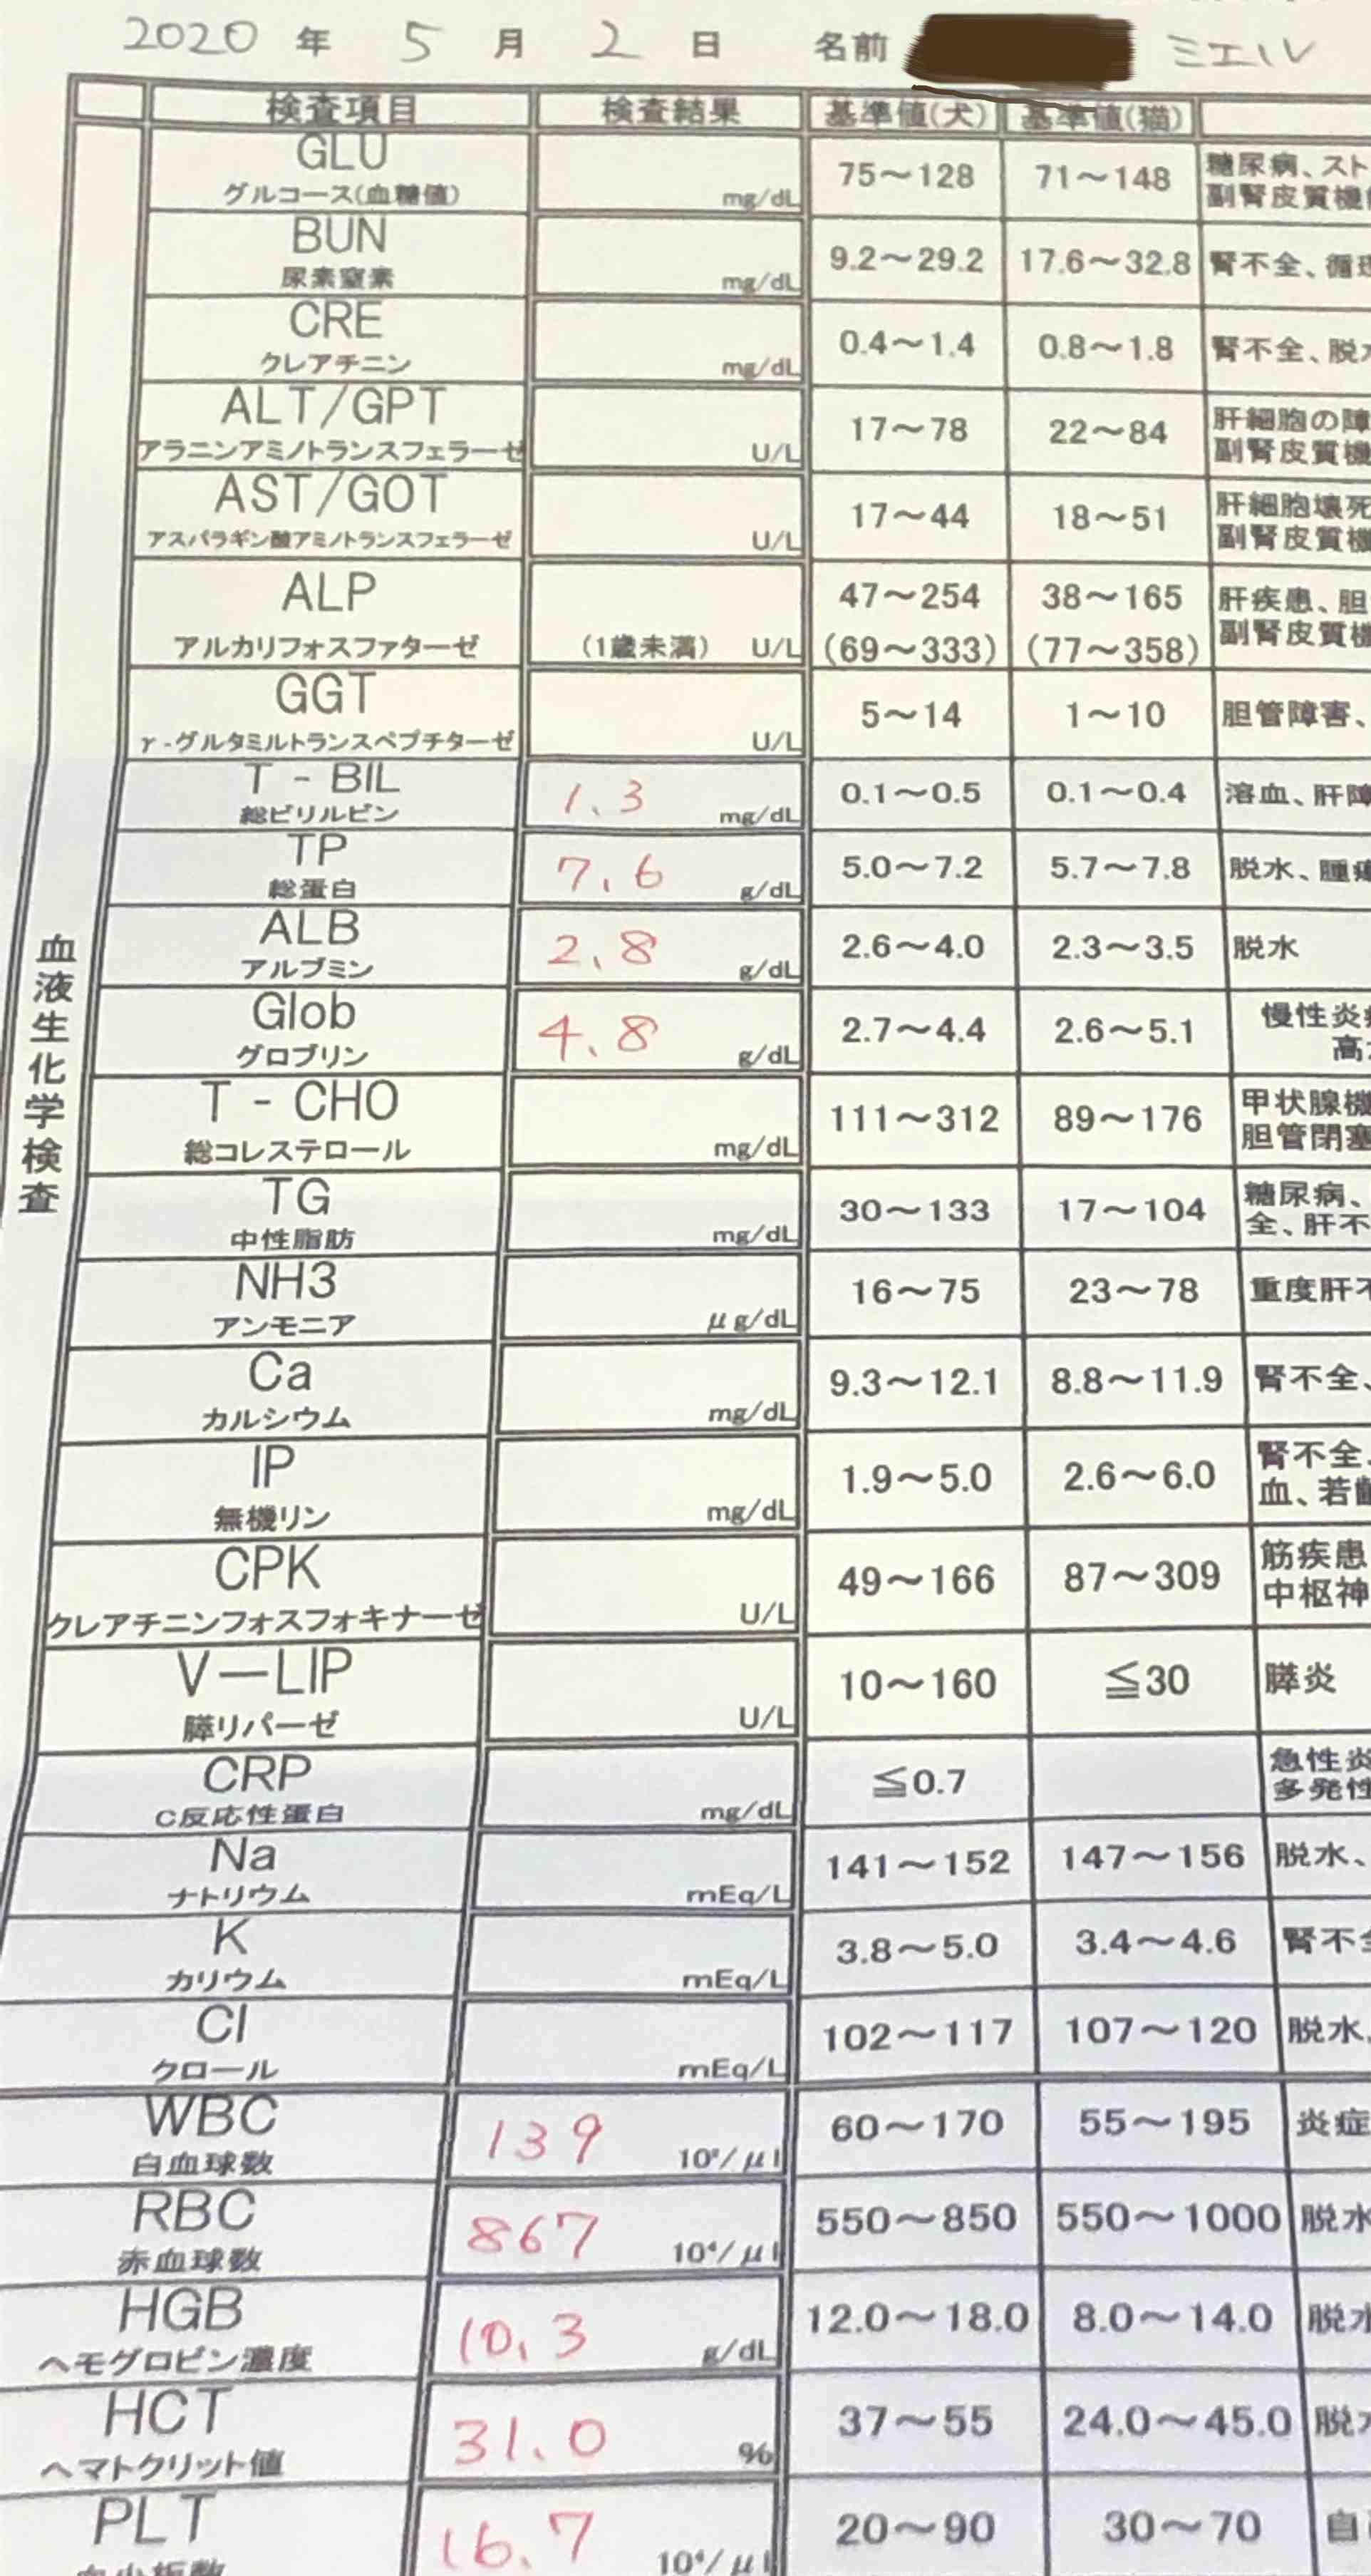 2020 年 5 月 2 日 名前 ミエル
検査項目 検査結果 基準値(犬) 基準値(猫)
血液生化学検査
GLU 75～128 71～148 糖尿病、スト
グルコース(血糖値) mg/dL 副腎皮質機
BUN 9.2～29.2 17.6～32.8 腎不全、循
尿素窒素 mg/dL
CRE 0.4～1.4 0.8～1.8 腎不全、脱
クレアチニン mg/dL
ALT/GPT 17～78 22～84 肝細胞の障
アラニンアミノトランスフェラーゼ U/L 副腎皮質機
AST/GOT 17～44 18～51 肝細胞壊死
アスパラギン酸アミノトランスフェラーゼ U/L 副腎皮質機
ALP 47～254 38～165 肝疾患、胆
アルカリフォスファターゼ (1歳未満) U/L (69～333) (77～358) 副腎皮質機
GGT 5～14 1～10 胆管障害、
γ-グルタミルトランスペプチターゼ U/L
T - BIL 1.3 0.1～0.5 0.1～0.4 溶血、肝障
総ビリルビン mg/dL
TP 7.6 5.0～7.2 5.7～7.8 脱水、腫瘍
総蛋白 g/dL
ALB 2.8 2.6～4.0 2.3～3.5 脱水
アルブミン g/dL
Glob 4.8 2.7～4.4 2.6～5.1 慢性炎
グロブリン g/dL 高
T - CHO 111～312 89～176 甲状腺機
総コレステロール mg/dL 胆管閉塞
TG 30～133 17～104 糖尿病、
中性脂肪 mg/dL 全、肝不
NH3 16～75 23～78 重度肝不
アンモニア μg/dL
Ca 9.3～12.1 8.8～11.9 腎不全、
カルシウム mg/dL
IP 1.9～5.0 2.6～6.0 腎不全、
無機リン mg/dL 血、若齢
CPK 49～166 87～309 筋疾患
クレアチニンフォスフォキナーゼ U/L 中枢神
V－LIP 10～160 ≦30 膵炎
膵リパーゼ U/L
CRP ≦0.7 急性炎
C反応性蛋白 mg/dL 多発性
Na 141～152 147～156 脱水、
ナトリウム mEq/L
K 3.8～5.0 3.4～4.6 腎不全
カリウム mEq/L
Cl 102～117 107～120 脱水、
クロール mEq/L
WBC 139 60～170 55～195 炎症
白血球数 10²/μl
RBC 867 550～850 550～1000 脱水
赤血球数 10⁴/μl
HGB 10.3 12.0～18.0 8.0～14.0 脱水
ヘモグロビン濃度 g/dL
HCT 31.0 37～55 24.0～45.0 脱
ヘマトクリット値 %
PLT 16.7 20～90 30～70 自
血小板数 10⁴/μl